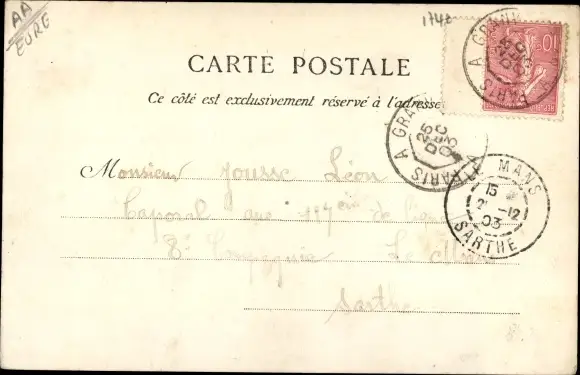 AA
EURE
1742
CARTE POSTALE
Ce côté est exclusivement réservé à l'adresse
PARIS A GRAN
25
DEC
03
LE MANS
15
2 -12
03
SARTHE
Monsieur Jousse Léon
Caporal au 117ème de
8e Compagnie Le Mans
Sarthe